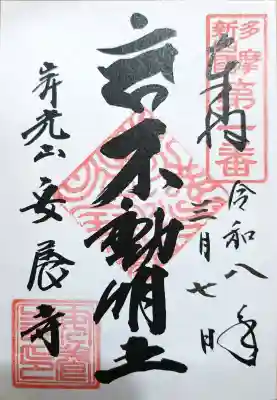 多摩
新四国
奉拝
令和八年
三月七日
不動明王
光山安養寺